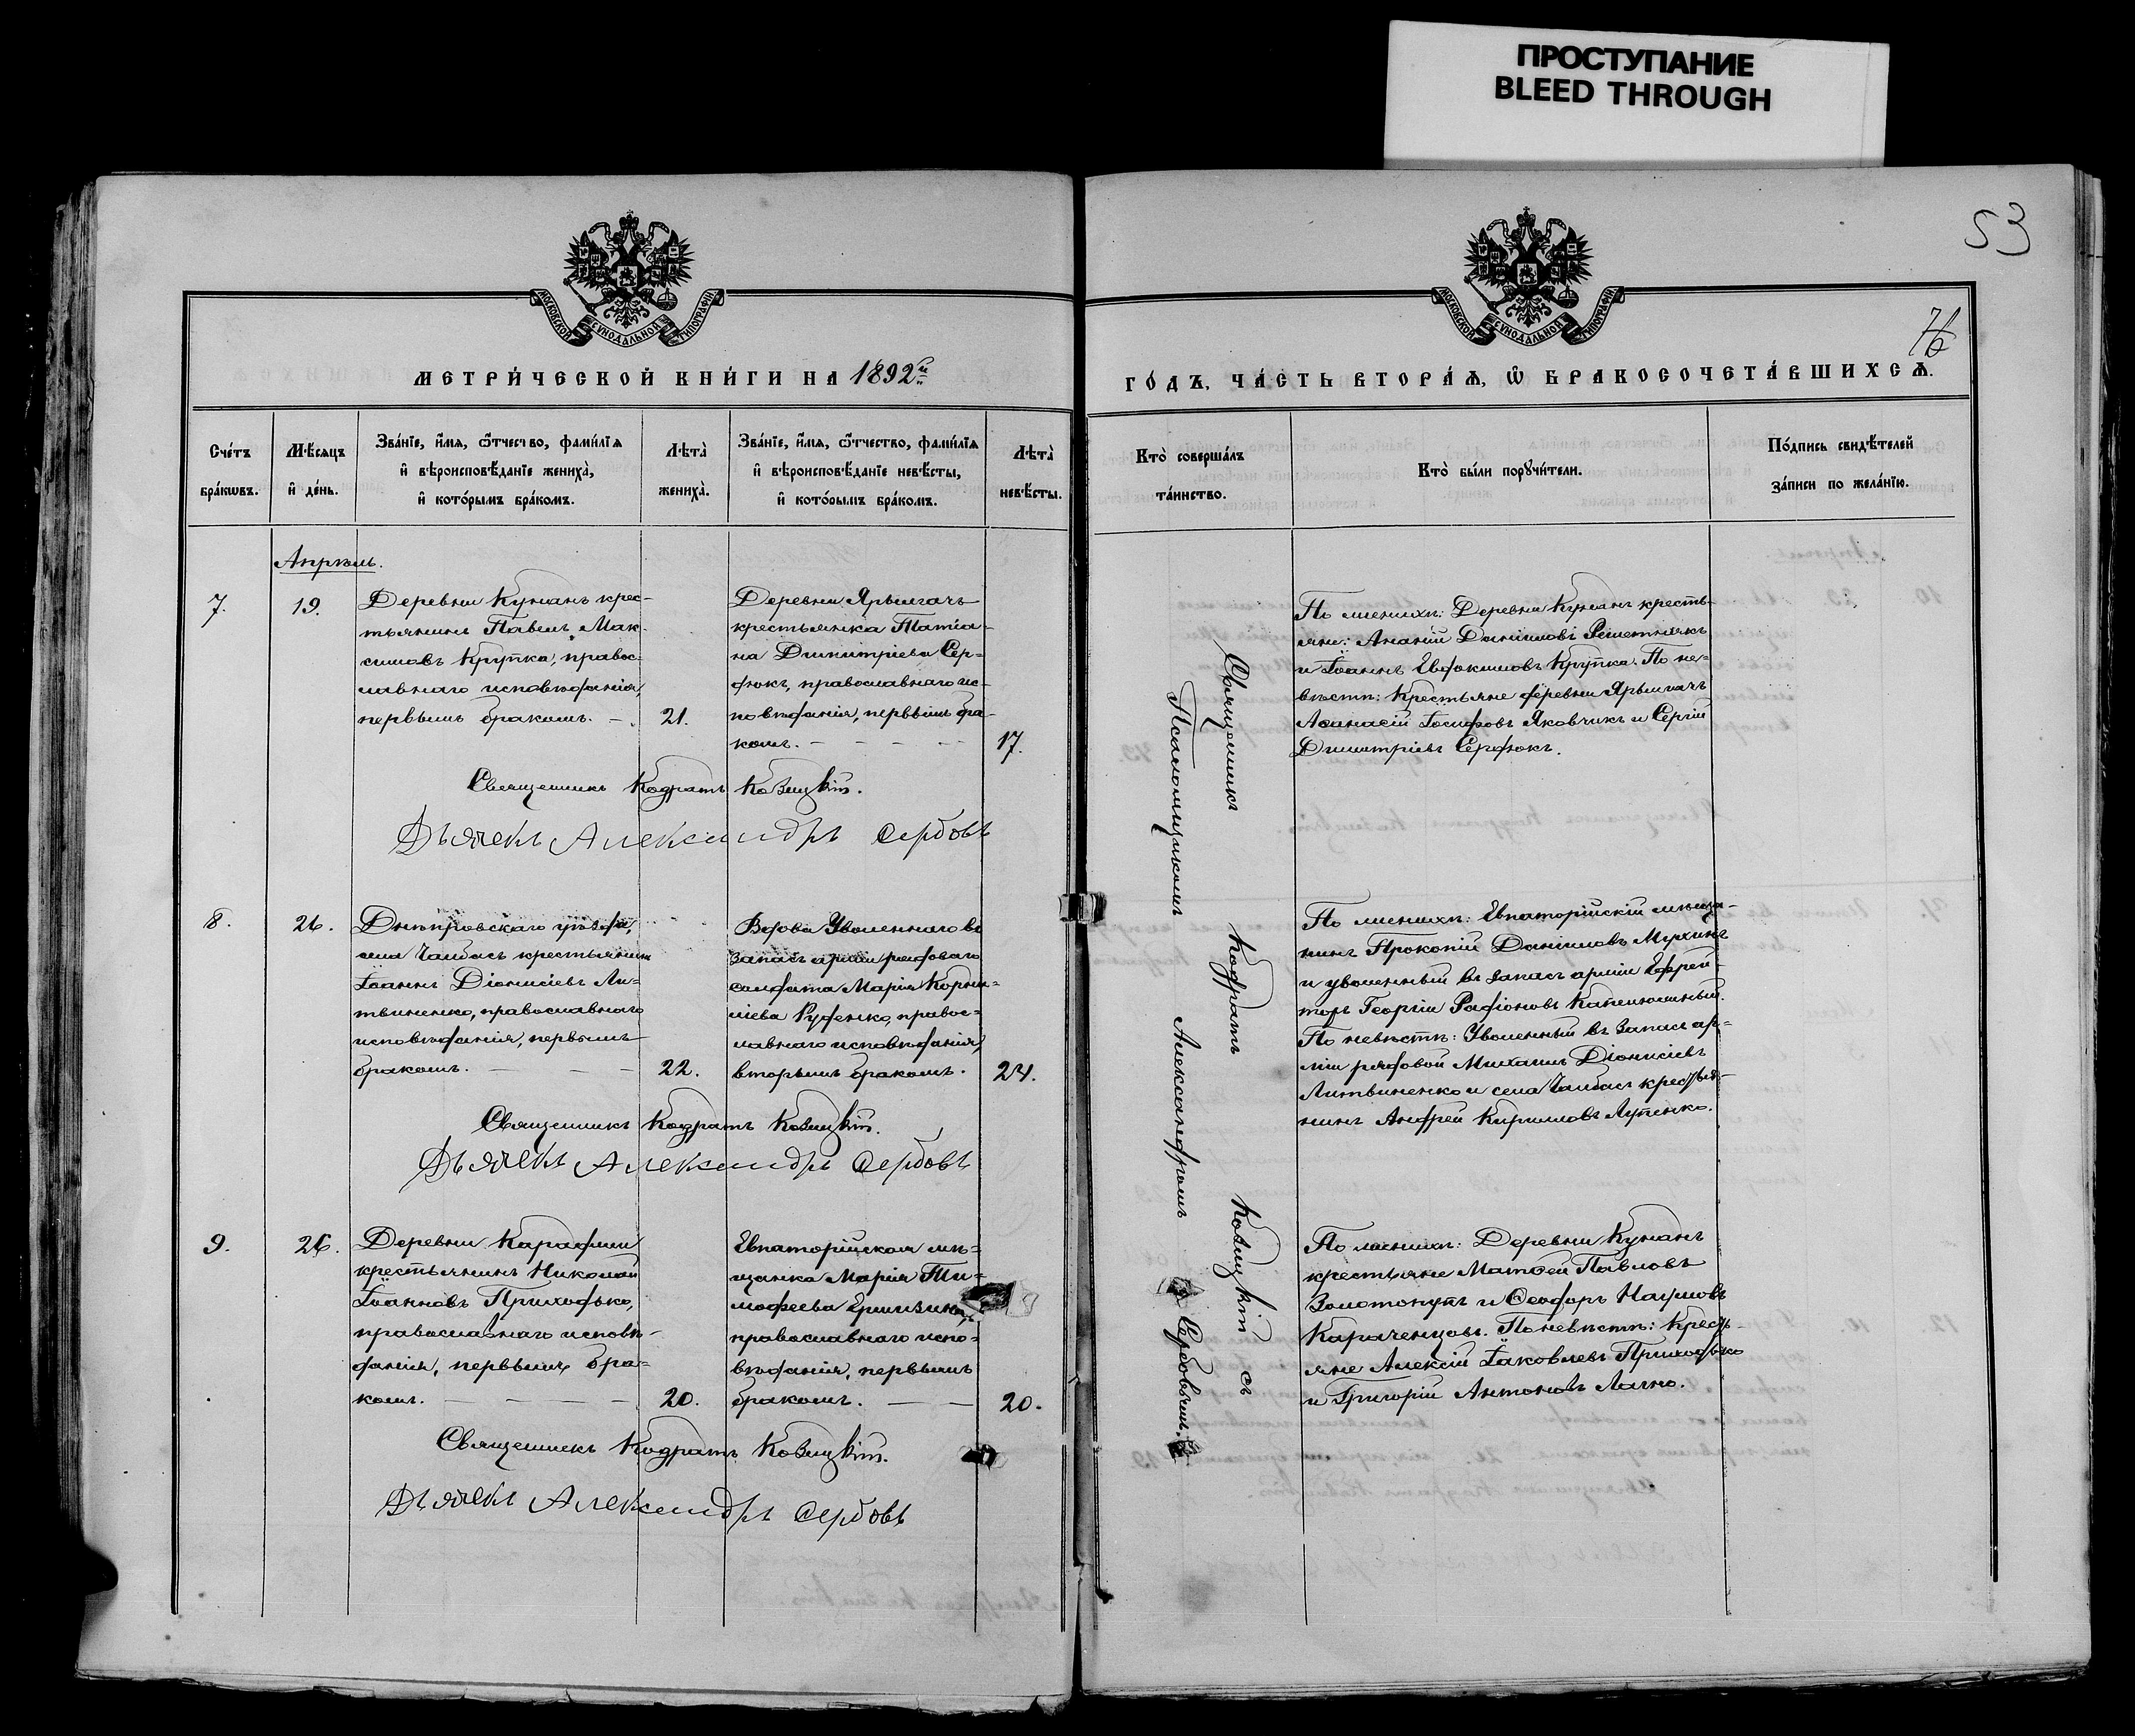 ПРОСТУПАНИЕ
BLEED THROUGH
53
76
МОСКОВСКОЙ СѴНОДАЛЬНОЙ ТИПОГРАФІИ
МОСКОВСКОЙ СѴНОДАЛЬНОЙ ТИПОГРАФІИ
МЕТРИ́ЧЕСКОЙ КНИ́ГИ НА 1892й
ГО́ДЪ, ЧА́СТЬ ВТОРА́Ѧ, Ѽ БРАКОСОЧЕТА́ВШИХСѦ.
Сче́тъ
бра́кѡвъ.
Мѣ́сяцъ
и҆ де́нь.
Зва́нїе, и҆́мя, ѻ҆́тчество, фами́лїя
и҆ вѣроисповѣ́данїе жениха̀,
и҆ кото́рымъ бра́комъ.
Лѣта̀
жениха̀.
Зва́нїе, и҆́мя, ѻ҆́тчество, фами́лїя
и҆ вѣроисповѣ́данїе невѣ́сты,
и҆ кото́рымъ бра́комъ.
Лѣта̀
невѣ́сты.
Кто̀ соверша́лъ
та́инство.
Кто̀ бы́ли порꙋчи́тели.
По́дпись свидѣ́телей
за́писи по жела́нїю.
Апрѣль.
7.
19.
Деревни Кунанъ крес-
тьянинъ Павелъ Мак-
симовъ Крупка, правос-
лавнаго исповѣданія,
первымъ бракомъ. —
21.
Деревни Ярылгачъ
крестьянка Татіа-
на Димитріева Сер-
дюкъ, православнаго ис-
повѣданія, первымъ бра-
комъ. — — — —
17.
По женихѣ: Деревни Кунанъ кресть-
яне: Ананій Даніиловъ Решетнякъ
и Іоаннъ Евдокимовъ Крупка. По не-
вѣстѣ: Крестьяне деревни Ярылгачъ
Аѳанасій Іосифовъ Яковчикъ и Сергій
Димитріевъ Сердюкъ.
Священникъ Кодратъ Козицкій.
Дьячекъ Александръ Сербовъ
8.
26.
Днѣпровскаго уѣзда,
села Чалбасъ крестьянинъ
Іоаннъ Діонисіевъ Ли-
твиненко, православнаго
исповѣданія, первымъ
бракомъ. — — —
22.
Вдова Уволеннаго въ
запасъ арміи рядоваго
солдата Марія Корни-
ліева Руденко, правос-
лавнаго исповѣданія,
вторымъ бракомъ.
24.
По женихѣ: Евпаторійскій мѣща-
нинъ Прокопій Даніиловъ Мухинъ
и уволенный въ запасъ арміи Ефрей-
торъ Георгій Радіоновъ
По невѣстѣ: Уволенный въ запасъ ар-
міи рядовой Михаилъ Діонисіевъ
Литвиненко и села Чалбасъ крестья-
нинъ Андрей Кирилловъ Лупенко.
Священникъ Кодратъ Козицкій.
Дьячекъ Александръ Сербовъ
9.
26.
Деревни Караджи
крестьянинъ Николай
Іоанновъ Приходько,
православнаго исповѣ-
данія, первымъ бра-
комъ. — — — —
20.
Евпаторійская мѣ-
щанка Марія Ти-
мофеева
православнаго испо-
вѣданія, первымъ
бракомъ. — —
20.
По женихѣ: Деревни Кунанъ
крестьяне Матѳей Павловъ
Золотопупъ и Ѳеодоръ Наумовъ
Караченцовъ. По невѣстѣ: Кресть-
яне Алексій Іаковлевъ Приходько
и Григорій Антоновъ Лахно.
Священникъ Кодратъ Козицкій.
Дьячекъ Александръ Сербовъ
Священникъ Кодратъ Козицкій съ
Псаломщикомъ Александромъ Сербовымъ.